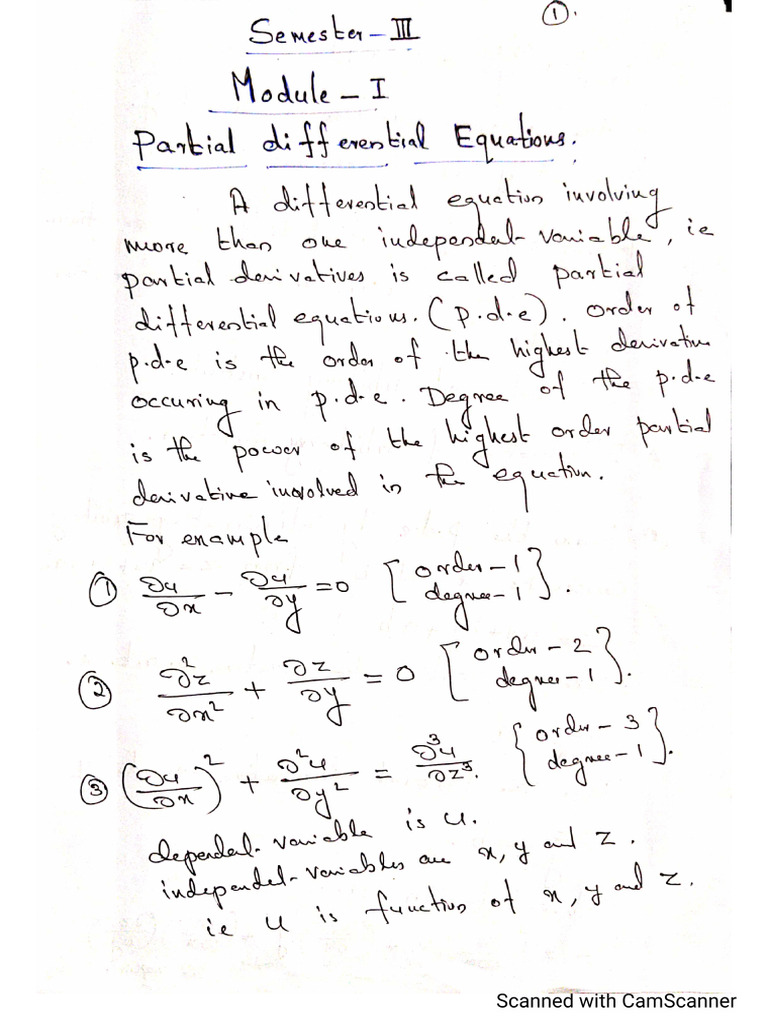 ①.
Semester - III
Module - I
Partial differential Equations.
A differential equation involving
more than one independent variable, ie
partial derivatives is called partial
differential equations. (p.d.e). order of
p.d.e is the order of the highest derivative
occuring in p.d.e. Degree of the p.d.e
is the power of the highest order partial
derivative involved in the equation.
For example
① ∂u/∂x - ∂u/∂y = 0 [order - 1 degree - 1}.
② ∂²z/∂x² + ∂z/∂y = 0 [order - 2 degree - 1}.
③ (∂u/∂x)² + ∂²u/∂y² = ∂³u/∂z³. {order - 3 degree - 1}.
dependent variable is u.
independent variables are x, y and z.
ie u is function of x, y and z.
Scanned with CamScanner